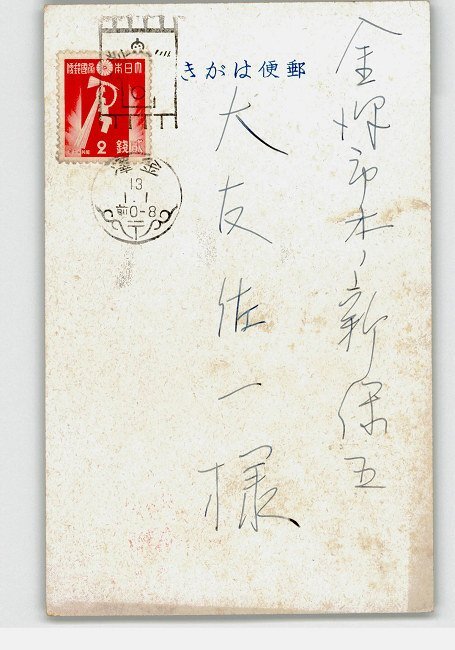 金澤市木ノ新保五
大友佐一様
きがは便郵
大日本帝國郵便
2銭
金澤
13
1.1
前0-8